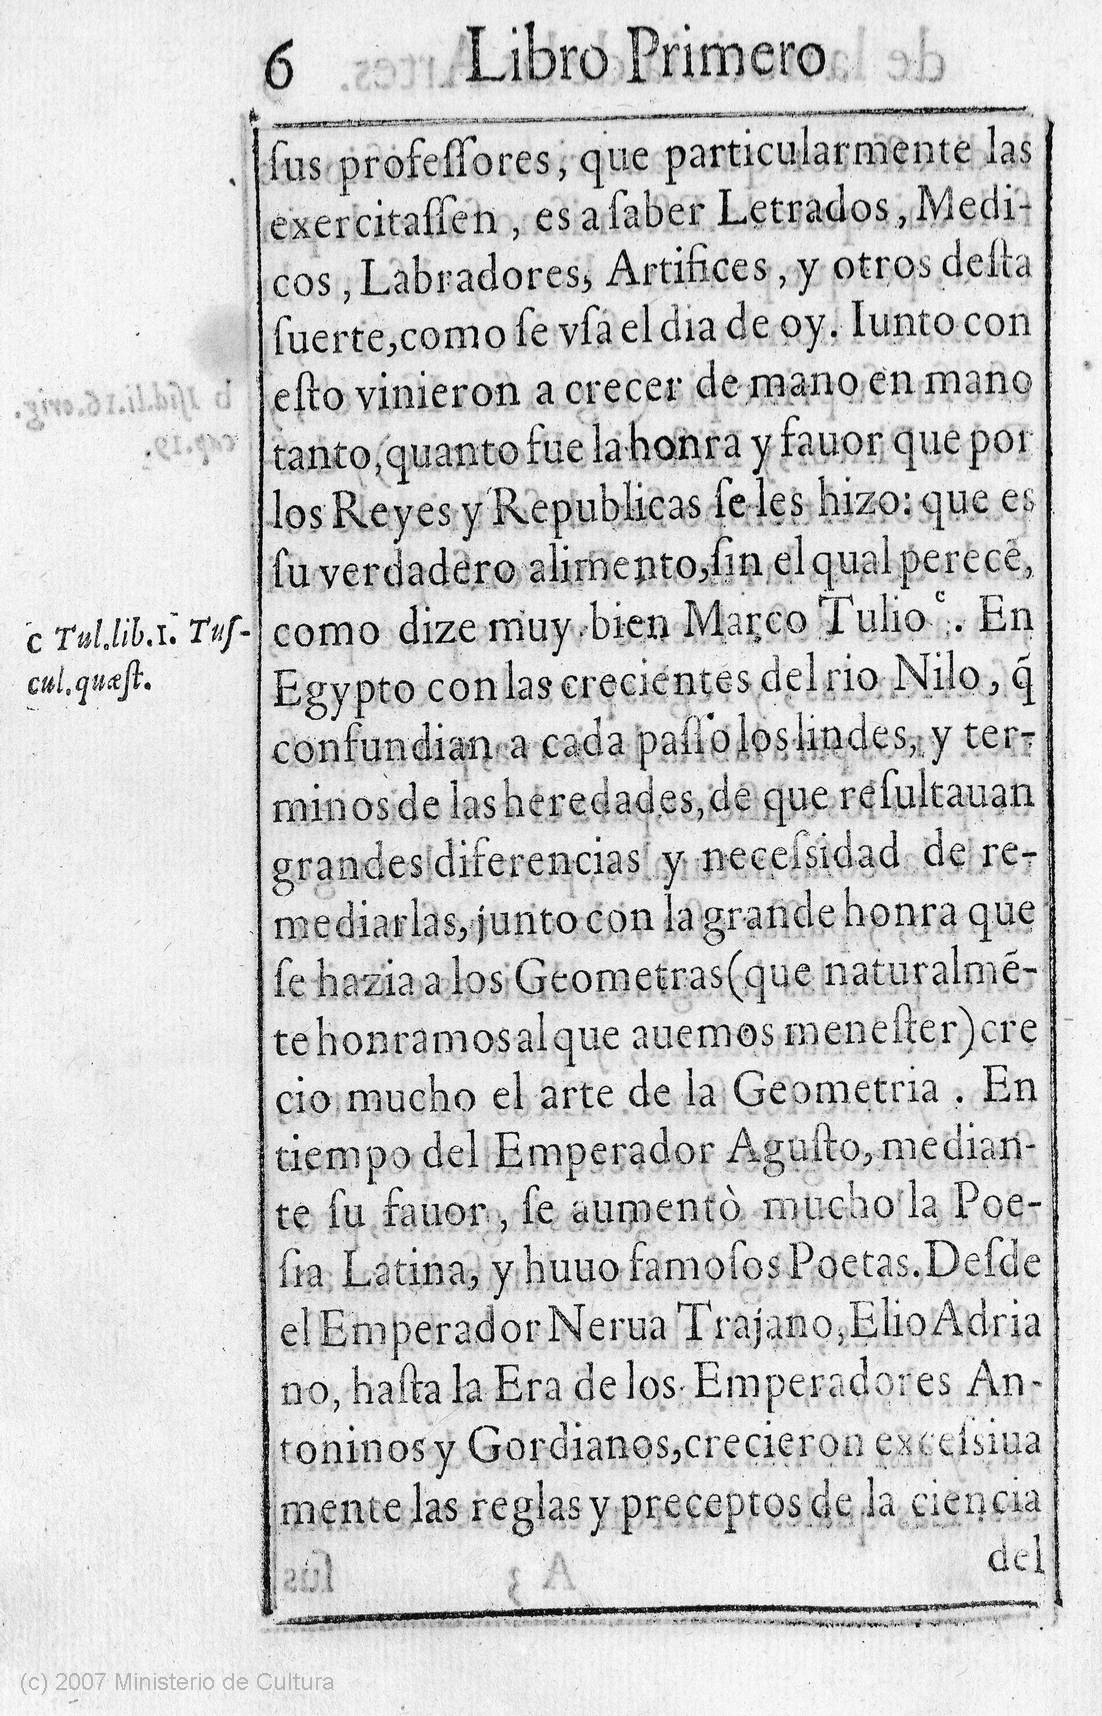 6 Libro Primero
ſus profeſſores, que particularmente las
exercitaſſen, es a ſaber Letrados, Medi-
cos, Labradores, Artifices, y otros deſta
ſuerte, como ſe vſa el dia de oy. Iunto con
eſto vinieron a crecer de mano en mano
tanto, quanto fue la honra y fauor que por
los Reyes y Republicas ſe les hizo: que es
ſu verdadero alimento, ſin el qual perece,
como dize muy bien Marco Tulio c. En
c Tul. lib. 1. Tuſ-
cul. quæſt.
Egypto con las crecientes del rio Nilo, q̃
confundian a cada paſſo los lindes, y ter-
minos de las heredades, de que reſultauan
grandes diferencias y neceſsidad de re-
mediarlas, junto con la grande honra que
ſe hazia a los Geometras (que naturalmẽ-
te honramos al que auemos meneſter) cre
cio mucho el arte de la Geometria. En
tiempo del Emperador Aguſto, median-
te ſu fauor, ſe aumentò mucho la Poe-
ſia Latina, y huuo famoſos Poetas. Deſde
el Emperador Nerua Trajano, Elio Adria
no, haſta la Era de los Emperadores An-
toninos y Gordianos, crecieron exceſsiua
mente las reglas y preceptos de la ciencia
del
(c) 2007 Ministerio de Cultura